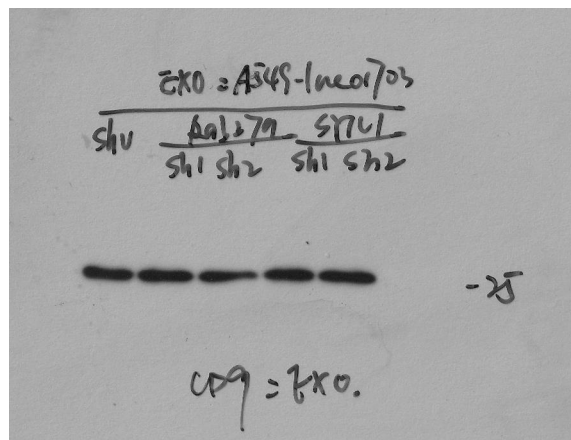 EXO = A549-linc01703
shv Rab27a SYTL1
sh1 sh2 sh1 sh2
-25
CD9 = EXO.